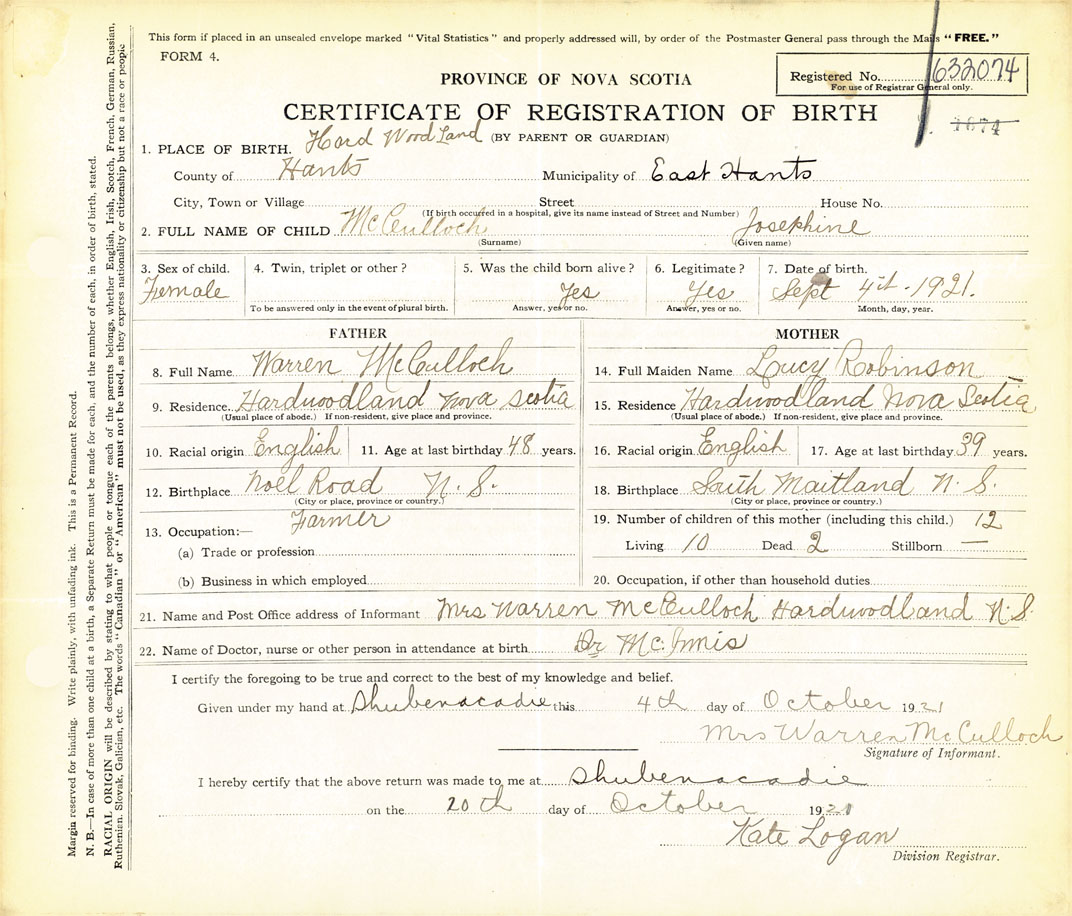 This form if placed in an unsealed envelope marked "Vital Statistics" and properly addressed will, by order of the Postmaster General pass through the Mails "FREE."
FORM 4.
PROVINCE OF NOVA SCOTIA
Registered No. 632074
For use of Registrar General only.
1674
CERTIFICATE OF REGISTRATION OF BIRTH
(BY PARENT OR GUARDIAN)
1. PLACE OF BIRTH. Hard Wood Land
County of Hants Municipality of East Hants
City, Town or Village Street House No.
(If birth occurred in a hospital, give its name instead of Street and Number)
2. FULL NAME OF CHILD McCulloch Josephine
(Surname) (Given name)
3. Sex of child. 4. Twin, triplet or other? 5. Was the child born alive? 6. Legitimate? 7. Date of birth.
Female Yes Yes Sept 4th - 1921.
To be answered only in the event of plural birth. Answer, yes or no. Answer, yes or no. Month, day, year.
FATHER
8. Full Name Warren McCulloch
9. Residence Hardwoodland Nova Scotia
(Usual place of abode.) If non-resident, give place and province.
10. Racial origin English 11. Age at last birthday 48 years.
12. Birthplace Noel Road N. S.
(City or place, province or country.)
13. Occupation:— Farmer
(a) Trade or profession
(b) Business in which employed
MOTHER
14. Full Maiden Name Lucy Robinson
15. Residence Hardwoodland Nova Scotia
(Usual place of abode.) If non-resident, give place and province.
16. Racial origin English 17. Age at last birthday 39 years.
18. Birthplace South Maitland N. S.
(City or place, province or country.)
19. Number of children of this mother (including this child.) 12
Living 10 Dead 2 Stillborn —
20. Occupation, if other than household duties
21. Name and Post Office address of Informant Mrs Warren McCulloch Hardwoodland N.S.
22. Name of Doctor, nurse or other person in attendance at birth Dr McInnis
I certify the foregoing to be true and correct to the best of my knowledge and belief.
Given under my hand at Shubenacadie this 4th day of October 1921
Mrs Warren McCulloch
Signature of Informant.
I hereby certify that the above return was made to me at Shubenacadie
on the 20th day of October 1921
Kate Logan
Division Registrar.
Margin reserved for binding. Write plainly, with unfading ink. This is a Permanent Record.
N. B.—In case of more than one child at a birth, a Separate Return must be made for each, and the number of each, in order of birth, stated.
RACIAL ORIGIN will be described by stating to what people or tongue each of the parents belongs, whether English, Irish, Scotch, French, German, Russian,
Ruthenian, Slovak, Galician, etc. The words "Canadian" or "American" must not be used, as they express nationality or citizenship but not a race or people